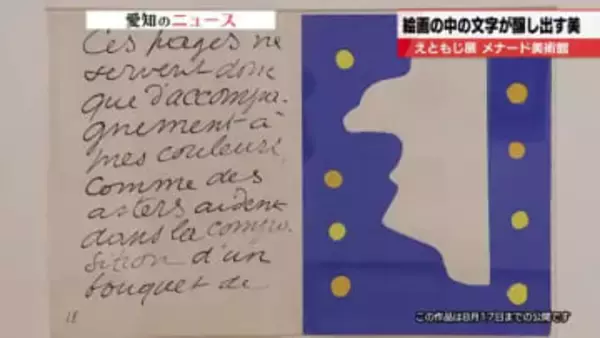 愛知のニュース
絵画の中の文字が醸し出す美
えともじ展 メナード美術館
Ces pages ne
servent donc
que d'accompa-
gnement à
mes couleurs,
comme des
asters aident
dans la compo-
sition d'un
bouquet de
18
この作品は8月17日までの公開です